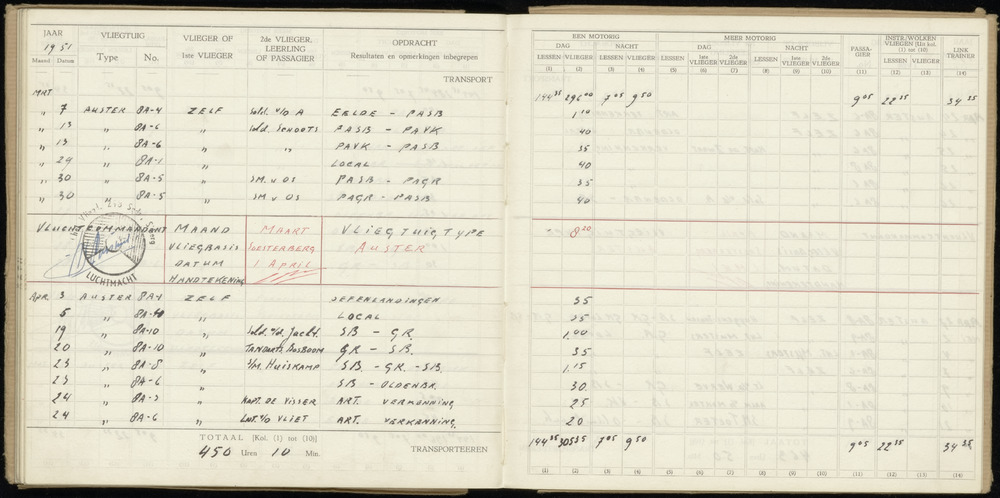 JAAR
1951
Maand Datum
VLIEGTUIG
Type No.
VLIEGER OF
1ste VLIEGER
2de VLIEGER,
LEERLING
OF PASSAGIER
OPDRACHT
Resultaten en opmerkingen inbegrepen
TRANSPORT
MRT
" 7 AUSTER 8A-4 ZELF Sold. v/d A EELDE - PASB
" 13 " 8A-6 " Sold. SCHOOTS PASB - PAVK
" 13 " 8A-6 " " PAVK - PASB
" 24 " 8A-1 " LOCAL
" 30 " 8A-5 " SM. v OS PASB - PAGR
" 30 " 8A-5 " SM v OS PAGR - PASB
VLUCHTCOMMANDANT MAAND MAART VLIEGTUIGTYPE
VLIEGBASIS SOESTERBERG AUSTER
DATUM 1 APRIL
HANDTEKENING
LUCHTMACHT
APR. 3 AUSTER 8A-1 ZELF OEFENLANDINGEN
5 " " LOCAL
19 " 8A-10 " Sold. v/d Jacht. SB - GR.
20 " 8A-10 " TANDARTS BOSBOOM GR - SB.
23 " 8A-8 " S/M. HUISKAMP SB. - GR. - SB.
23 " 8A-6 " SB - OLDENBR.
24 " 8A-3 " KAPT. DE VISSER ART. VERKENNING
24 " 8A-6 " LNT. V/D VLIET ART. VERKENNING.
TOTAAL [Kol. (1) tot (10)]
450 Uren 10 Min.
TRANSPORTEEREN
EEN MOTORIG MEER MOTORIG
DAG NACHT DAG NACHT
PASSA-
GIER
INSTR./WOLKEN
VLIEGEN [Uit kol.
(1) tot (10)]
LINK
TRAINER
LESSEN VLIEGER LESSEN VLIEGER LESSEN 1ste VLIEGER 2de VLIEGER LESSEN 1ste VLIEGER 2de VLIEGER LESSEN VLIEGER
(1) (2) (3) (4) (5) (6) (7) (8) (9) (10) (11) (12) (13) (14)
144 35 296 00 7 05 9 50 9 05 22 35 34 35
1 10
40
35
40
35
40
8 20
35
25
1.40
35
1.15
30
25
20
144 35 305 35 7 05 9 50 9 05 22 35 34 35
(1) (2) (3) (4) (5) (6) (7) (8) (9) (10) (11) (12) (13) (14)